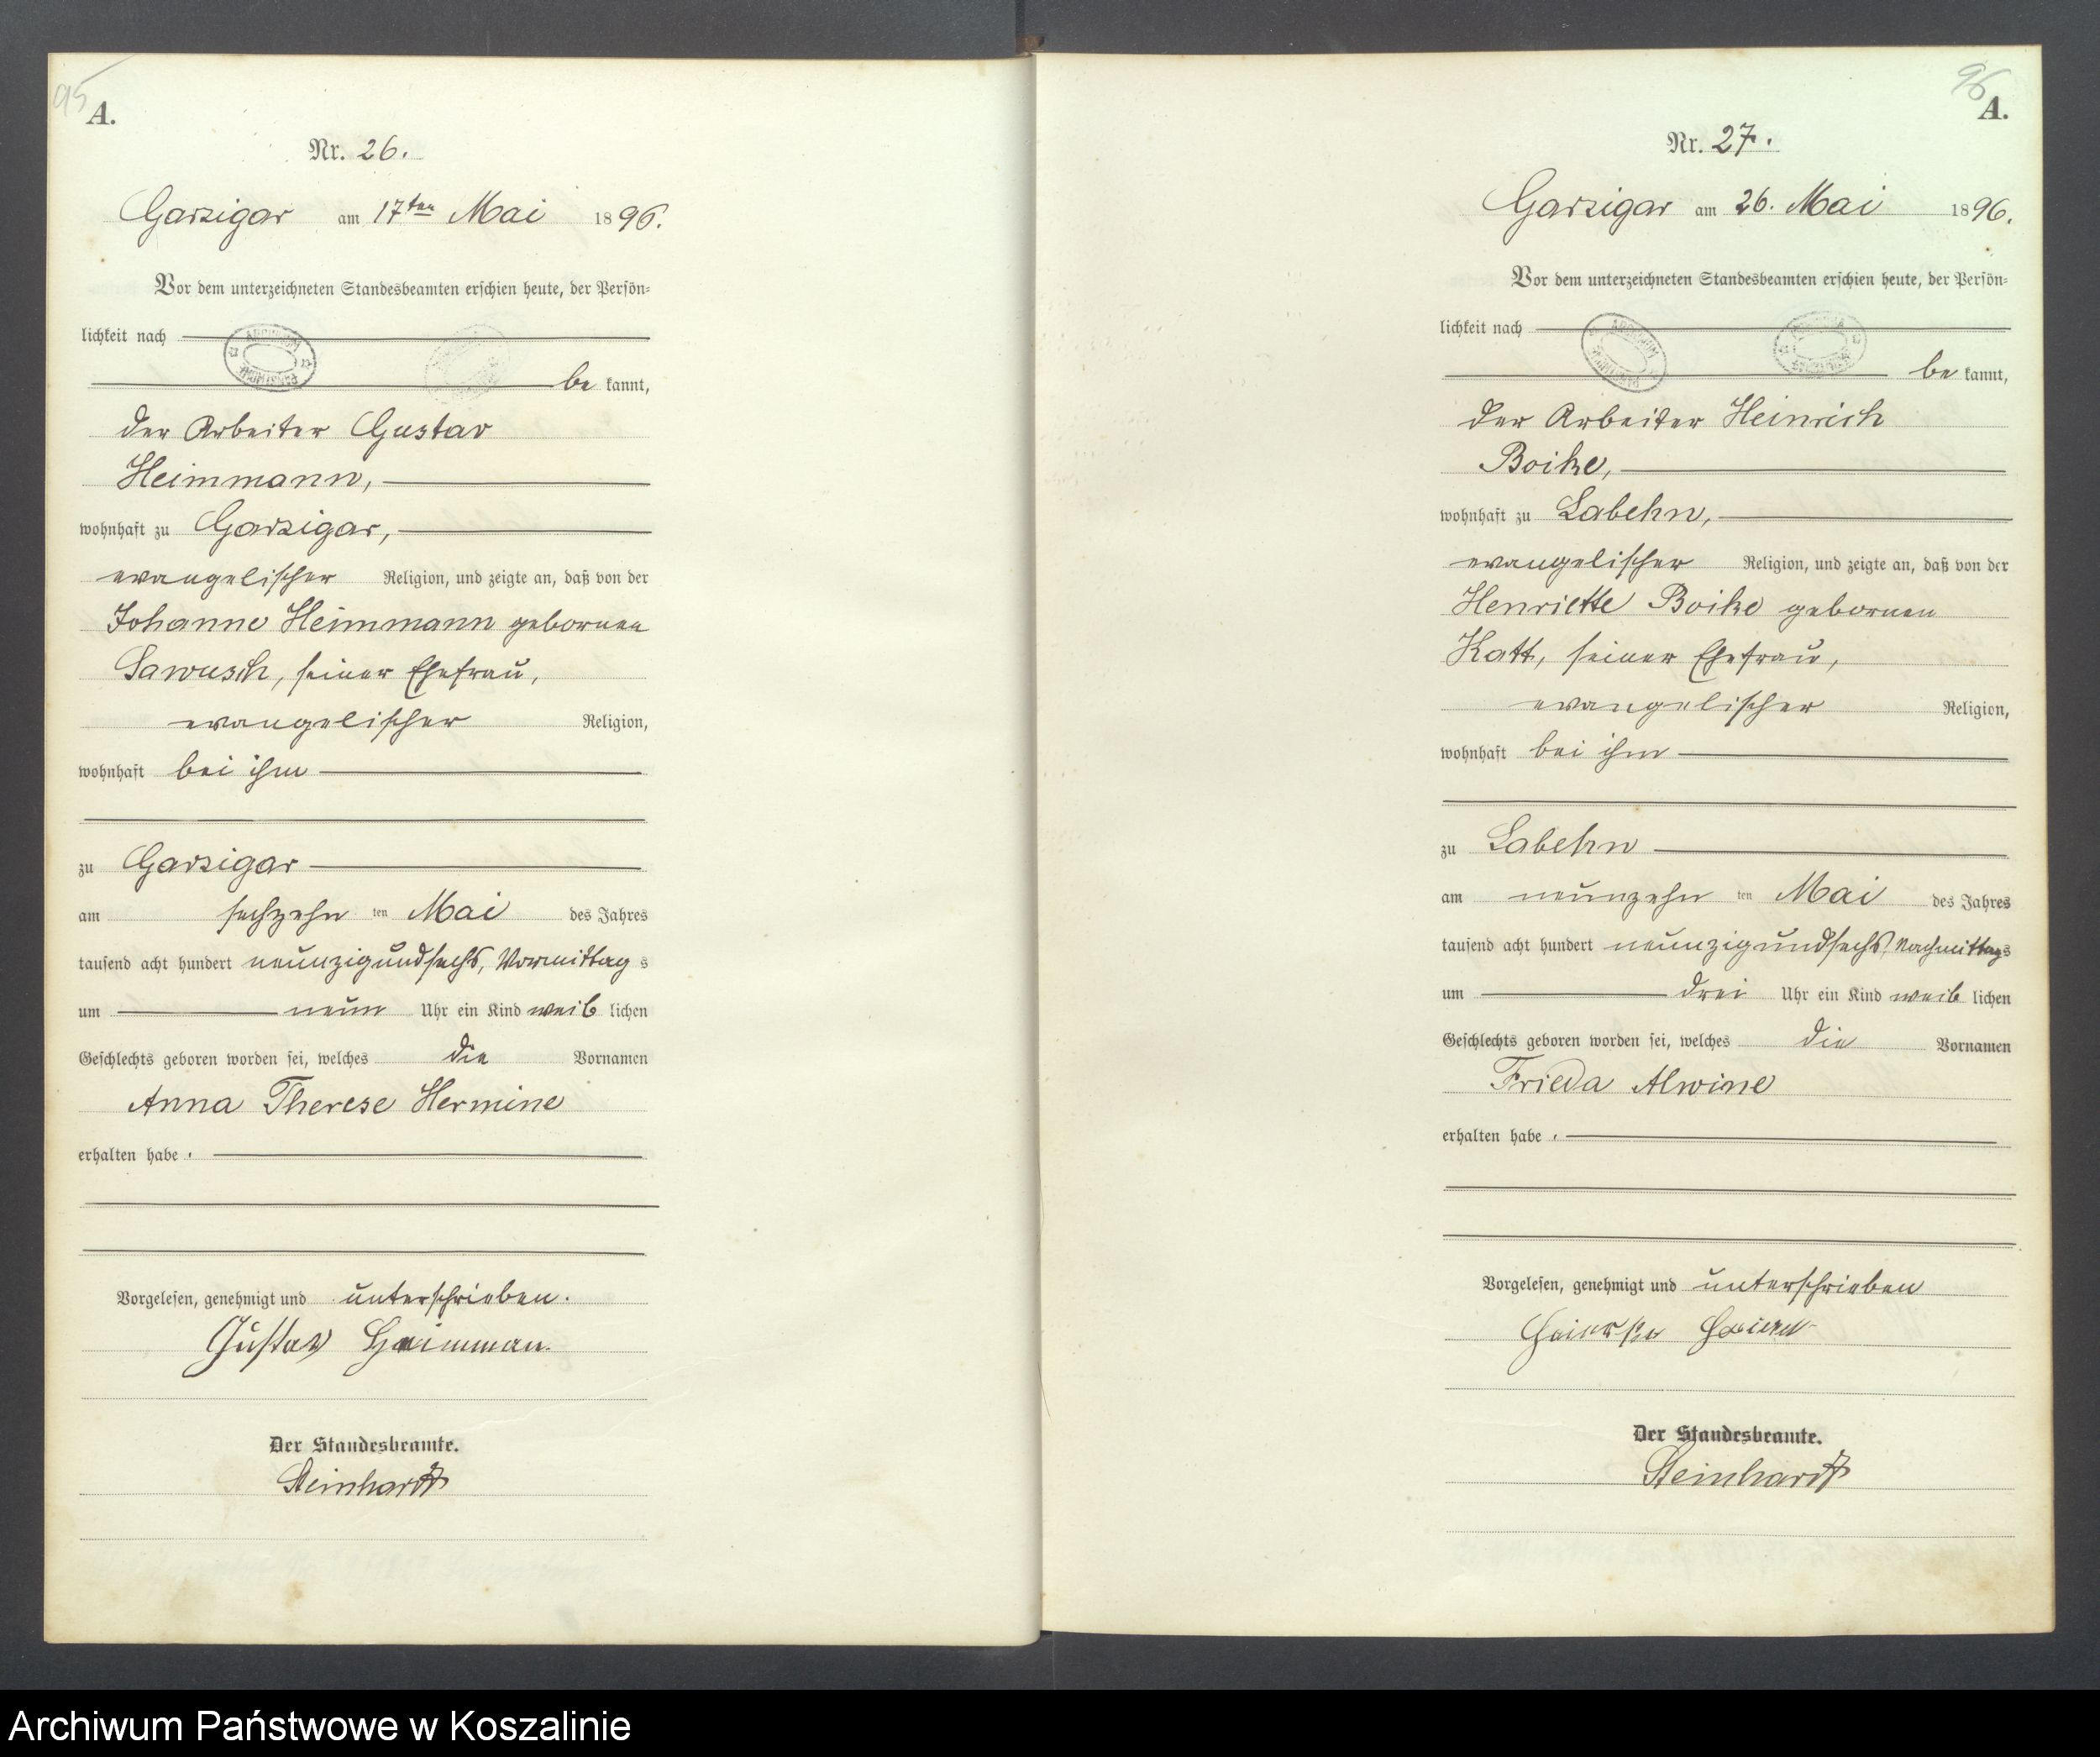 95
A.
Nr. 26.
Garzigar am 17ten Mai 1896.
Vor dem unterzeichneten Standesbeamten erschien heute, der Persön-
lichkeit nach
be kannt,
der Arbeiter Gustav
Heimmann,
wohnhaft zu Garzigar,
evangelischer Religion, und zeigte an, daß von der
Johanne Heimmann gebornen
Sawusch, seiner Ehefrau,
evangelischer Religion,
wohnhaft bei ihm
zu Garzigar
am sechzehn ten Mai des Jahres
tausend acht hundert neunzigundsechs, Vormittag s
um neun Uhr ein Kind weib lichen
Geschlechts geboren worden sei, welches die Vornamen
Anna Therese Hermine
erhalten habe.
Vorgelesen, genehmigt und unterschrieben.
Gustav Heimman.
Der Standesbeamte.
Steinhardt
96
A.
Nr. 27.
Garzigar am 26. Mai 1896.
Vor dem unterzeichneten Standesbeamten erschien heute, der Persön-
lichkeit nach
be kannt,
der Arbeiter Heinrich
Boike,
wohnhaft zu Labehn,
evangelischer Religion, und zeigte an, daß von der
Henriette Boike gebornen
Katt, seiner Ehefrau,
evangelischer Religion,
wohnhaft bei ihm
zu Labehn
am neunzehn ten Mai des Jahres
tausend acht hundert neunzigundsechs, Nachmittags
um drei Uhr ein Kind weib lichen
Geschlechts geboren worden sei, welches die Vornamen
Frieda Alwine
erhalten habe.
Vorgelesen, genehmigt und unterschrieben
Der Standesbeamte.
Steinhardt
Archiwum Państwowe w Koszalinie